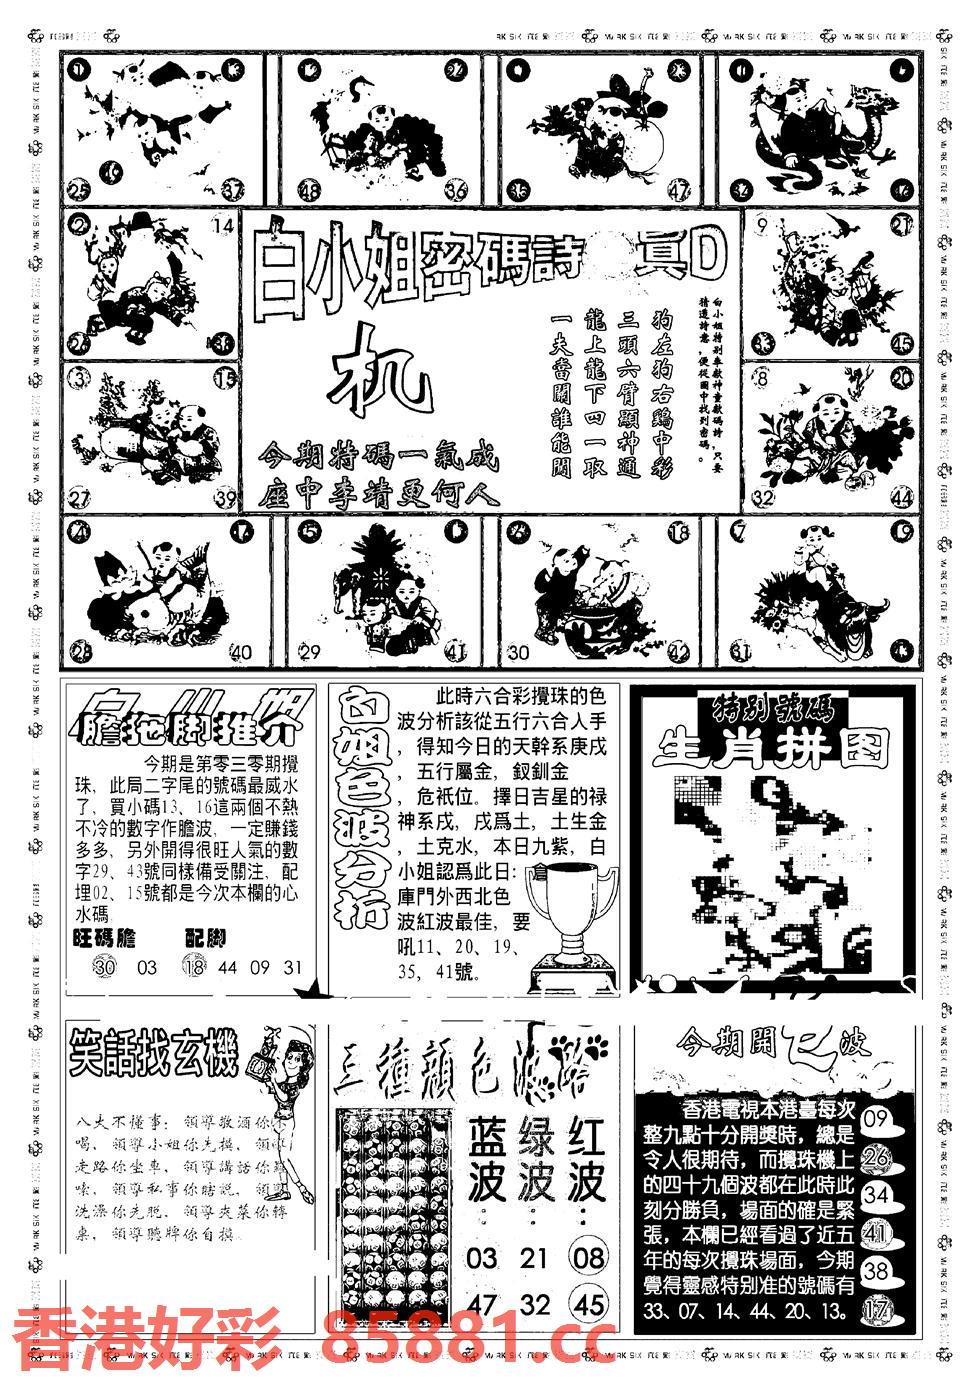 白小姐密碼詩 真D
机
今期特碼一氣成
座中李靖更何人
白小姐特别奉献神童献碼詩，只要
猜透詩意，便從圖中找到密碼。
狗左狗右鷄中彩
三頭六臂顯神通
龍上龍下四一取
一夫當關誰能開
1 25 49 37
48 36
35 47
2 14 26 38
9 21 33 45
3 15 27 39
8 20 32 44
28 40
5 29 41
30 18 42
7 19 31
膽拖脚推介
今期是第零三零期攪
珠，此局二字尾的號碼最威水
了，買小碼13、16這兩個不熱
不冷的數字作膽波，一定賺錢
多多，另外開得很旺人氣的數
字29、43號同樣備受關注，配
埋02、15號都是今次本欄的心
水碼
旺碼膽 配脚
30 03 18 44 09 31
白姐色波分析
此時六合彩攪珠的色
波分析該從五行六合人手
，得知今日的天幹系庚戌
，五行屬金，釵釧金
，危衹位。擇日吉星的禄
神系戌，戌爲土，土生金
，土克水，本日九紫，白
小姐認爲此日：倉
庫門外西北色
波紅波最佳，要
吼11、20、19、
35，41號。
特别號碼
生肖拼图
笑話找玄機
八夫不懂事：領導敬酒你不
喝，領導小姐你先摸，領導
走路你坐車，領導講話你羅
嗦，領導私事你瞎説，領導
洗澡你先脱，領導夾菜你轉
桌，領導聽牌你自摸。
三種顔色波路
蓝波： 绿波： 红波：
03 21 08
47 32 45
今期開 波
香港電視本港臺每次
整九點十分開獎時，總是
令人很期待，而攪珠機上
的四十九個波都在此時此
刻分勝負，場面的確是緊
張，本欄已經看過了近五
年的每次攪珠場面，今期
覺得靈感特别准的號碼有
33、07、14、44、20、13。
09
26
34
41
38
17
香港好彩 85881.cc